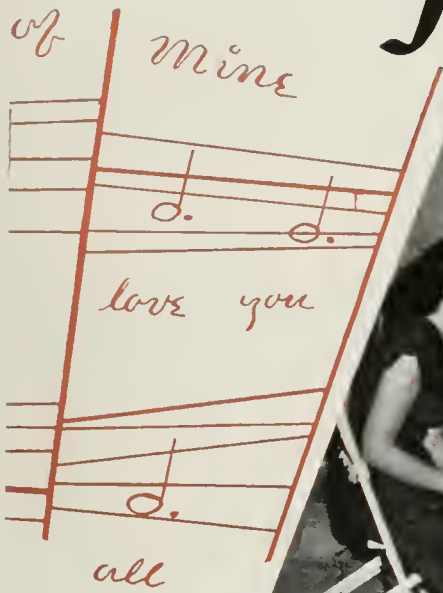 of mine
love you
all